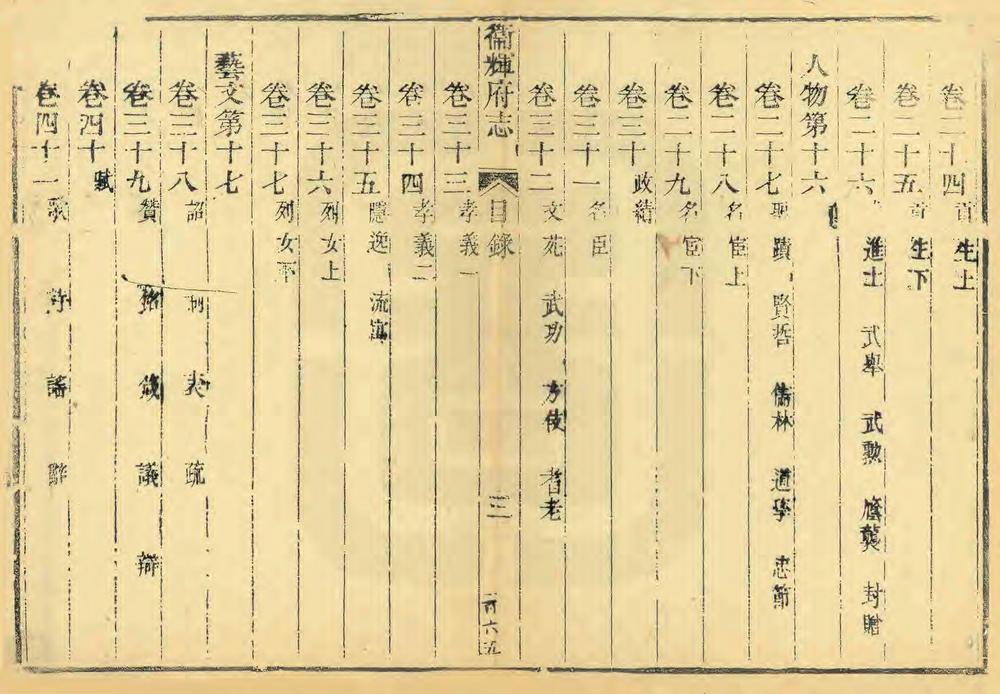 卷二十四 貢生上
卷二十五 貢生下
卷二十六 進士 武舉 武勲 廕襲 封贈
人物第十六
卷二十七 聖蹟 賢哲 儒林 道學 忠節
卷二十八 名宦上
卷二十九 名宦下
卷三十 政績
卷三十一 名臣
卷三十二 文苑 武功 方伎 耆老
衞輝府志 目錄 三 一百六五
卷三十三 孝義一
卷三十四 孝義二
卷三十五 隱逸 流寓
卷三十六 列女上
卷三十七 列女下
藝文第十七
卷三十八 詔 制 表 疏
卷三十九 贊 銘 箴 議 辯
卷四十 賦
卷四十一 歌 行 謠 辭